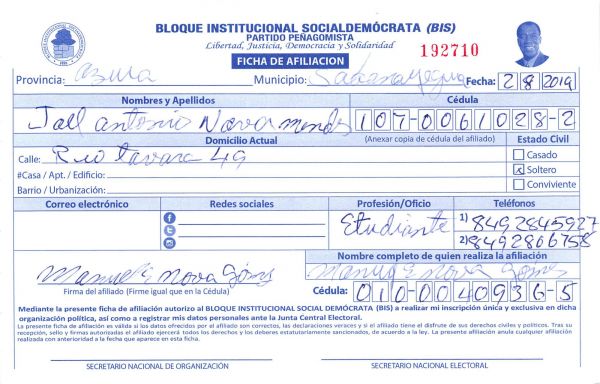 BLOQUE INSTITUCIONAL SOCIALDEMÓCRATA (BIS)
PARTIDO PEÑAGOMISTA
Libertad, Justicia, Democracia y Solidaridad
192710
FICHA DE AFILIACION
Provincia: Azua Municipio: Sabana Yegua Fecha: 2/8/2019
Nombres y Apellidos Cédula
Joel Antonio Nova Mendez 107-0061028-2
Domicilio Actual (Anexar copia de cédula del afiliado) Estado Civil
Calle: Rio Tavara 49 Casado
#Casa / Apt. / Edificio: Soltero
Barrio / Urbanización: Conviviente
Correo electrónico Redes sociales Profesión/Oficio Teléfonos
Estudiante 1) 8492845927
2) 8492806758
Nombre completo de quien realiza la afiliación
Manuel E Nova Gomez Manuel E Nova Gomez
Firma del afiliado (Firme igual que en la Cédula) Cédula: 010-0040936-5
Mediante la presente ficha de afiliación autorizo al BLOQUE INSTITUCIONAL SOCIAL DEMÓCRATA (BIS) a realizar mi inscripción única y exclusiva en dicha
organización política, así como a registrar mis datos personales ante la Junta Central Electoral.
La presente ficha de afiliación es válida si los datos ofrecidos por el afiliado son correctos, las declaraciones veraces y si el afiliado tiene el disfrute de sus derechos civiles y políticos. Tras su
recepción, sello y firmas autorizadas el afiliado ejercerá todos los derechos y los deberes estatutariamente sancionados, de acuerdo a la ley. La presente afiliación anula cualquier afiliación
realizada con anterioridad a la fecha que aparece en esta ficha.
SECRETARIO NACIONAL DE ORGANIZACIÓN SECRETARIO NACIONAL ELECTORAL